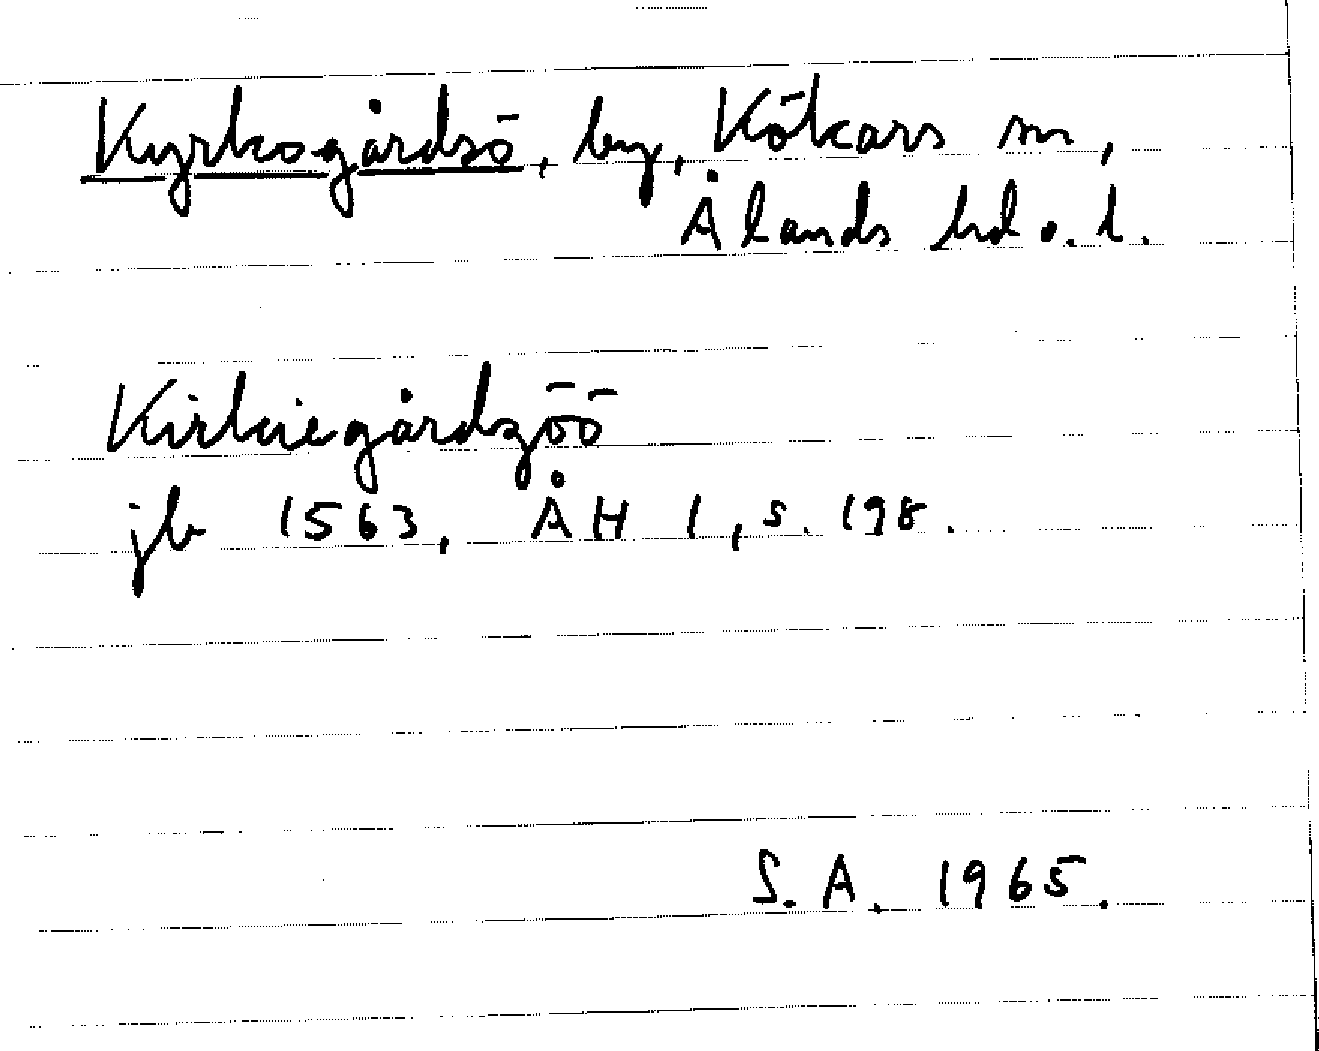 Kyrkogårdsö, by, Kökars sn,
Ålands hd o. l.
Kirkiegårdzöö
jb 1563, ÅH 1, s. 198.
S.A. 1965.